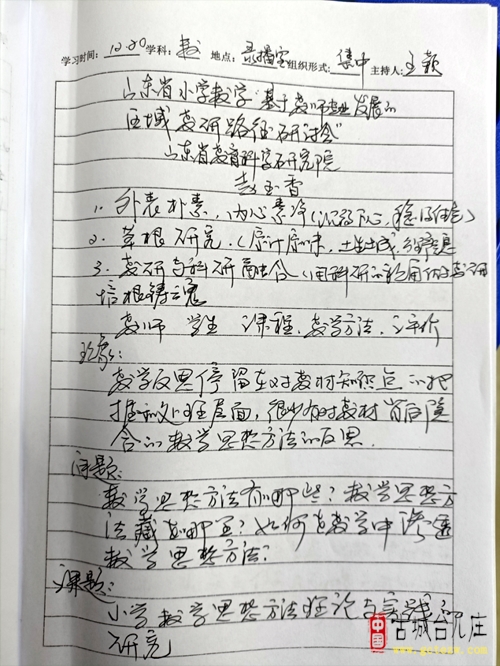 学习时间：12.20 学科：数 地点：录播室 组织形式：集中 主持人：王颖
山东省小学数学“基于教师专业发展的
区域教研路径研讨会”
山东省教育科学研究院
1、外表朴素，内心素净
2、草根研究，
3、教研与科研融合（用科研的
培根铸魂
教师 学生 课程、教学方法、评价
现象：
教学反思停留在对教材知识点的把
握和处理层面，很少有对教材背后隐
含的数学思想方法的反思。
问题：
数学思想方法有哪些？数学思想方
法藏在哪里？如何在教学中渗透
数学思想方法？
课题：
小学数学思想方法理论与实践的
研究
中国
古城台儿庄